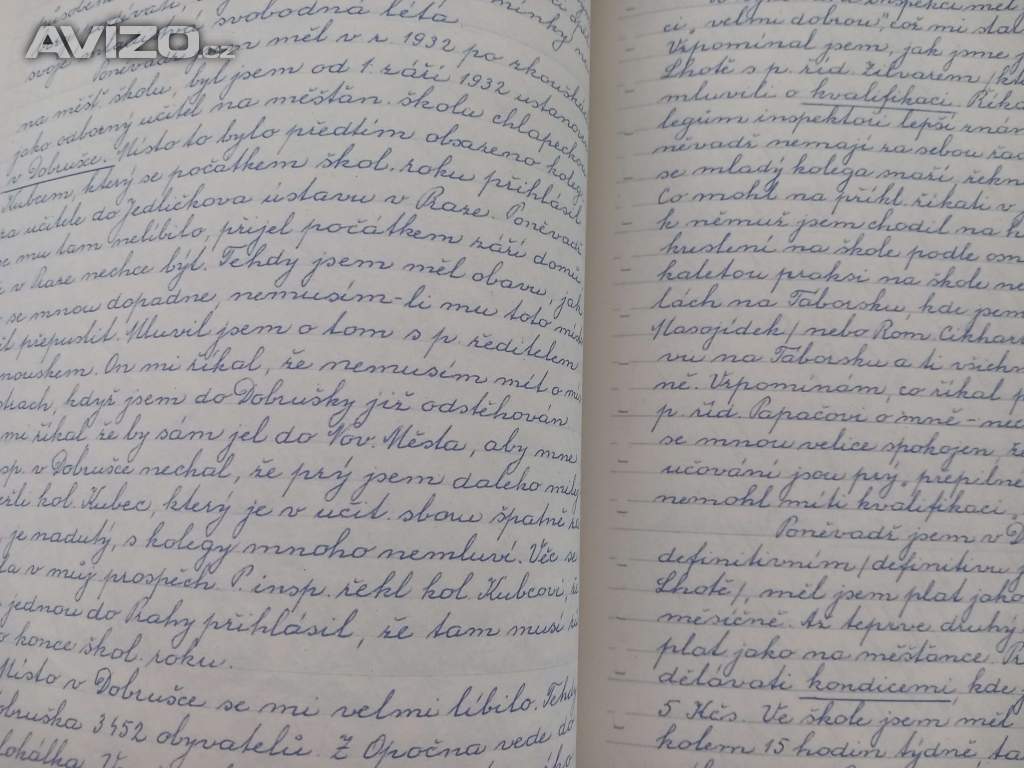 AVIZO.cz
svobodná léta.
Poněvadž jsem měl v r. 1932 po zkoušku
na měšť. školu, byl jsem od 1. září 1932 ustanoven
jako odborný učitel na měšťan. školu chlapeckou
v Dobrušce. Místo to bylo předtím obsazeno kolegy
Kubcem, který se počátkem škol. roku přihlásil
za učitele do Jedličkova ústavu v Praze. Poněvadž
se mu tam nelíbilo, přijel počátkem září domů
v Praze nechce být. Tehdy jsem měl obavu, jak
se mnou dopadne, nemusím-li mu toto místo
přepustit. Mluvil jsem o tom s p. ředitelem
On mi říkal, že nemusím mít o mí
když jsem do Dobrušky již odstěhován
mi říkal že by sám jel do Nov. Města, aby mne
sp. v Dobrušce nechal, že prý jsem daleko milej
kol. Kubec, který je v učit. sboru špatně
je nadutý, s kolegy mnoho nemluví. Věc se
la v můj prospěch. P. insp. řekl kol. Kubcovi, že
jednou do Prahy přihlásil, že tam musí
konce škol. roku.
Místo v Dobrušce se mi velmi líbilo. Tehdy
Dobruška 3452 obyvatelů. Z Opočna vede do
lokálka.
ci „velmi dobrou", což mi stal
Vzpomínal jsem, jak jsme j
Lhotě s p. říd. Žilvarem / k
mluvili o kvalifikaci. Říka
legům inspektoři lepší znám
něvadž nemají za sebou řad
se mladý kolega snaží, řekn
Co mohl na příkl. říkati v
k němuž jsem chodil na h
kuslení na škole podle osn
kaletou praksi na škole ne
lách na Táborsku, kde jsem
Masojídek / nebo Rom. Cikhar
vu na Táborsku a ti všich
ně. Vzpomínám, co říkal p
p. říd. Papačovi o mně - ne
se mnou velice spokojen, že
učování jsou prý „přepilné
nemohl míti kvalifikaci „
Poněvadž jsem v D
definitivním / definitivu j
Lhotě /, měl jsem plat jako
měsíčně. Až teprve druhý
plat jako na měšťance. Př
dělávati kondicemi, kde
5 Kčs. Ve škole jsem měl
kolem 15 hodin týdně, ta